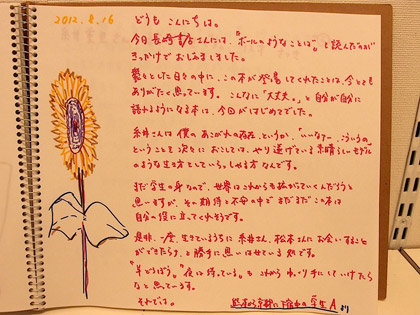 2012.8.16
どうも こんにちは。
今日 長崎書店さんには、"ボールのようなことば。"を読んだのが
きっかけで おじゃましました。
鬱々とした日々の中に、この本が登場してくれたことは、今とても
ありがたく思っています。こんなに「大丈夫。」と自分が自分に
語れるようになる本は、今回がはじめてでした。
糸井さんは 僕の あこがれの存在、というか、"いいなー、こういうの"
ということを 次々に おこしては、やり遂げている 素晴らしいモデル
のような生き方をしていらっしゃる方 なんです。
まだ学生の身なので、世界は これからも 拡がっていくんだろうと
思いますが、その期待と不安の中で まだまだ この本は
自分の役に立ってくれそうです。
是非、一度、生きているうちに 糸井さん、松本さんに お会いすること
ができたら、と勝手に思いはせている 次第です。
"羊どろぼう。""夜は待っている。"も これから ゆっくり手にしていけたら
なと思ってーす。
それでは。
学生A より